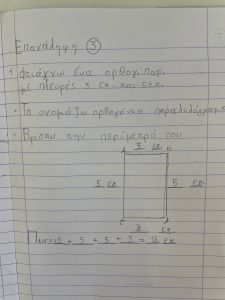 Επανάληψη ③
1. Φτιάχνω ένα ορθογ. Παρ.
με πλευρές 3 Εκ. και 5 Εκ.
• Το ονομάζω ορθογώνιο παραλληλόγραμμο
• Βρίσκω την περίμετρό του
A 3 Εκ. B
5 Εκ. 5 Εκ.
3 Εκ.
5 + 5 + 3 + 3 = 16 Εκ.